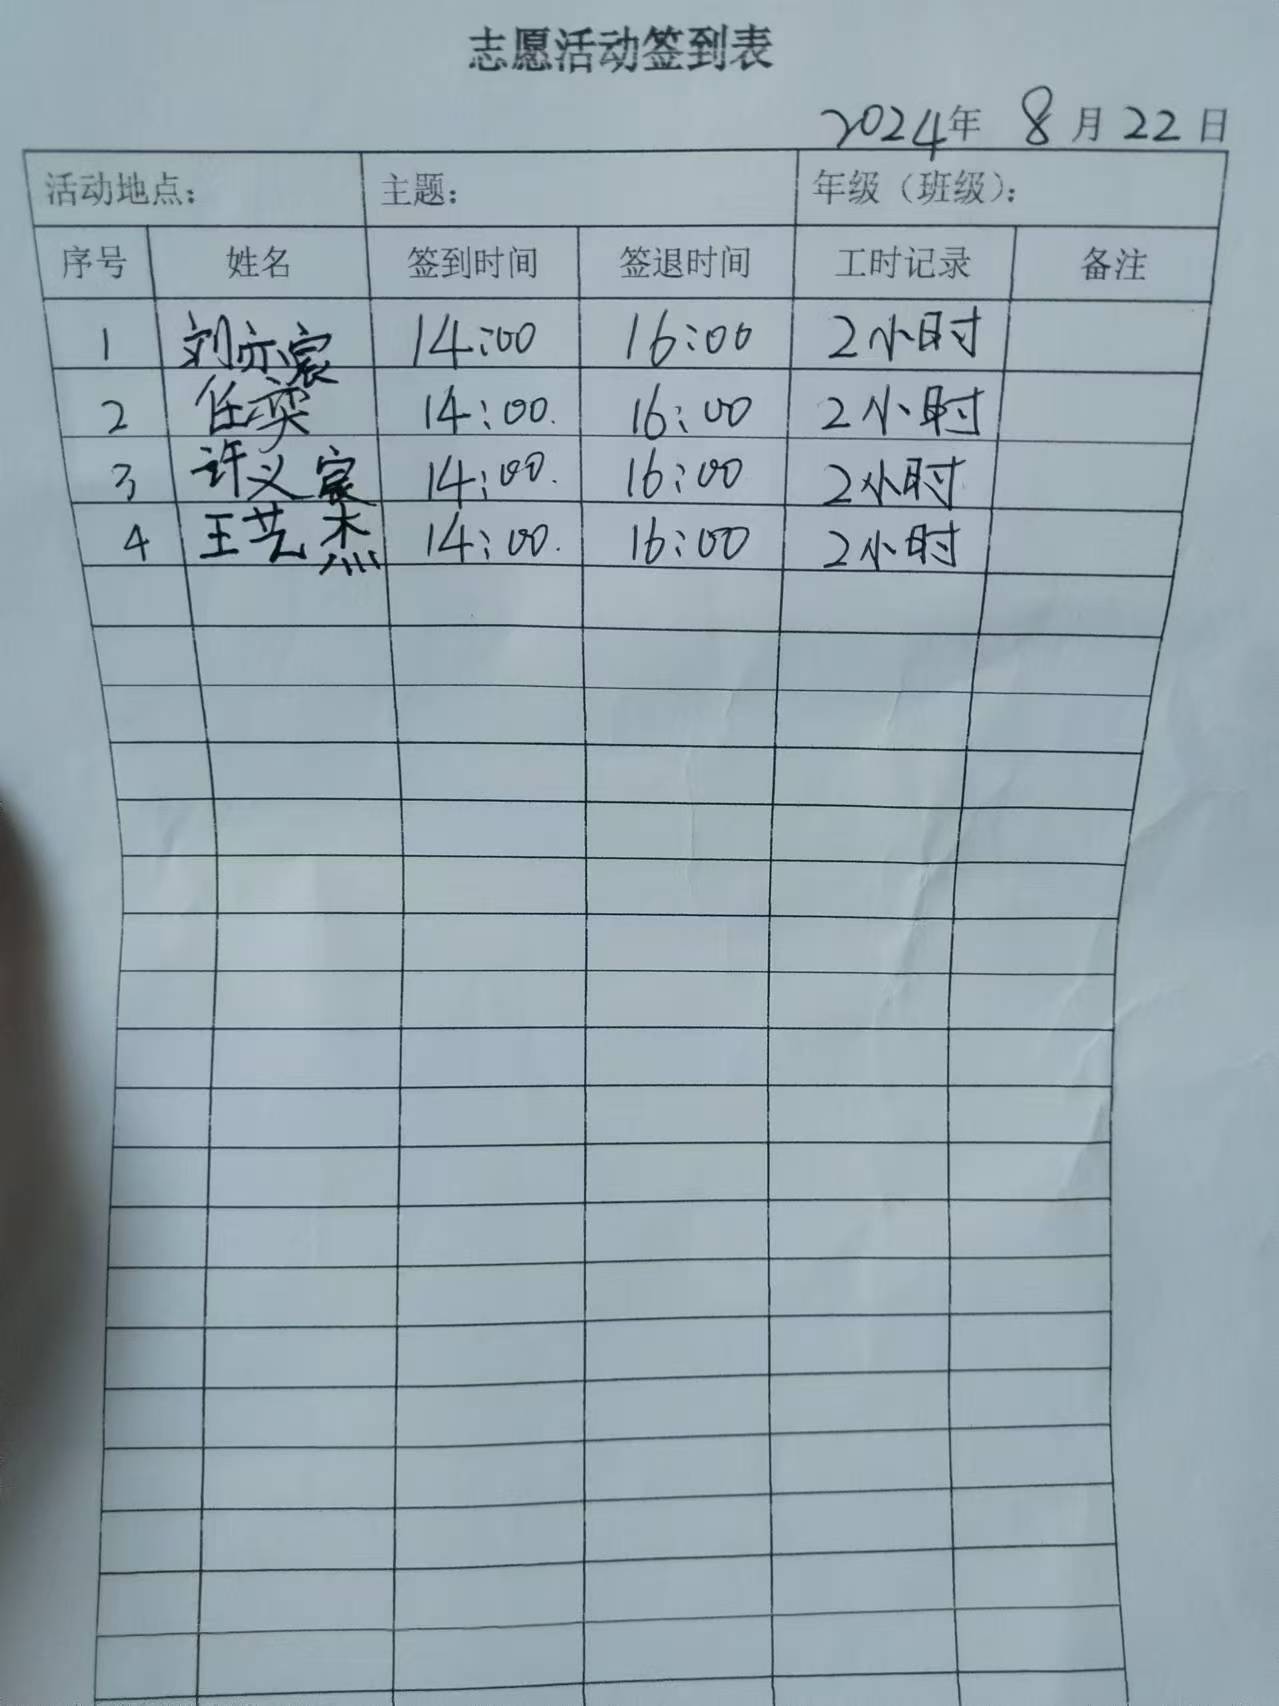 志愿活动签到表
2024年 8月22日
活动地点： 主题： 年级（班级）：
序号 姓名 签到时间 签退时间 工时记录 备注
1 刘亦宸 14:00 16:00 2小时
2 任奕 14:00. 16:00 2小时
3 许义宸 14:00. 16:00 2小时
4 王艺杰 14:00. 16:00 2小时